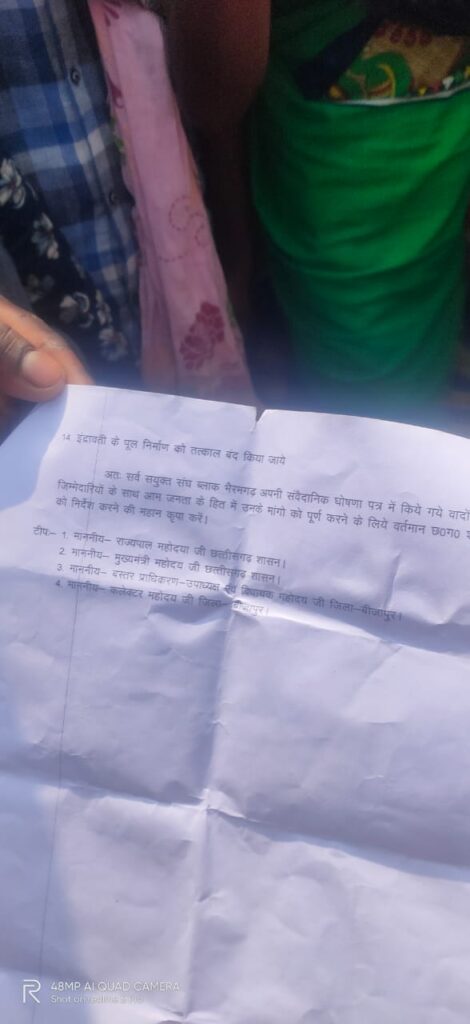 14. इंद्रावती के पूल निर्माण को तत्काल बंद किया जाये
अतः सर्व सयुक्त संघ ब्लाक भैरमगढ़ अपनी संवैदानिक घोषणा पत्र में किये गये वादो
जिम्मेदारियों के साथ आम जनता के हित में उनके मांगो को पूर्ण करने के लिये वर्तमान छ0ग0
को निर्देश करने की महान कृपा करें।
टीपः– 1. माननीय– राज्यपाल महोदया जी छत्तीसगढ़ शासन।
2. माननीय– मुख्यमंत्री महोदय जी छत्तीसगढ़ शासन।
3. माननीय– बस्तर प्राधिकरण–उपाध्यक्ष एवं विधायक महोदय जी जिला–बीजापुर।
4. माननीय– कलेक्टर महोदय जी जिला–बीजापुर।
R 48MP AI QUAD CAMERA
Shot on